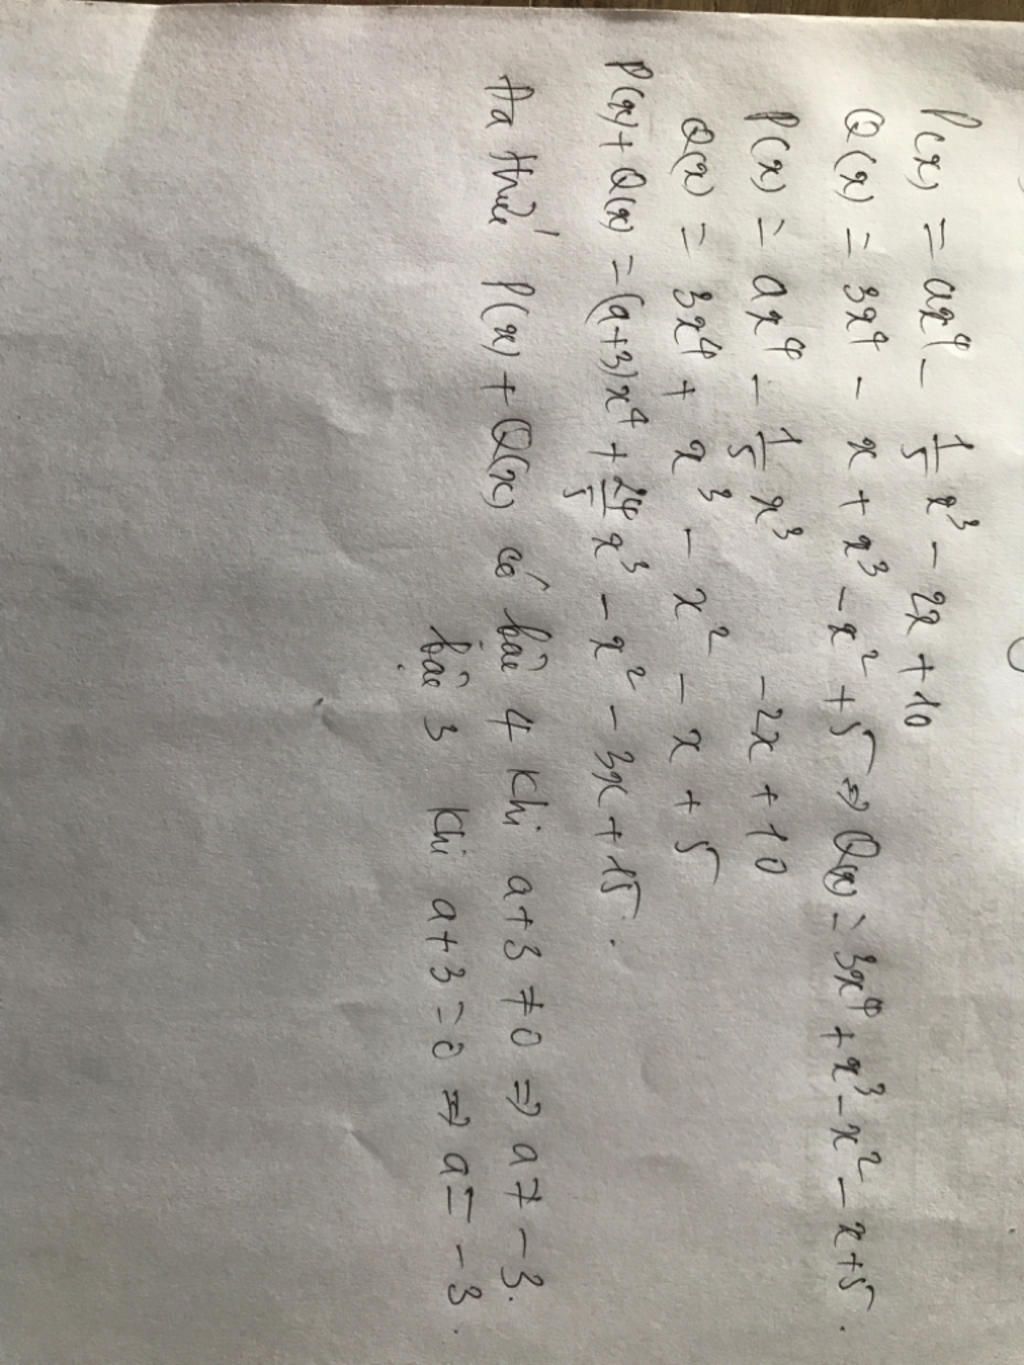 P(x) = ax⁴ - 1/5 x³ - 2x + 10
Q(x) = 3x⁴ - x + x³ - x² + 5 ⇒ Q(x) = 3x⁴ + x³ - x² - x + 5.
P(x) = ax⁴ - 1/5 x³ - 2x + 10
Q(x) = 3x⁴ + x³ - x² - x + 5
P(x) + Q(x) = (a+3)x⁴ + 24/5 x³ - x² - 3x + 15.
Đa thức P(x) + Q(x) có bậc 4 khi a+3 ≠ 0 ⇒ a ≠ -3.
bậc 3 khi a+3 = 0 ⇒ a = -3.